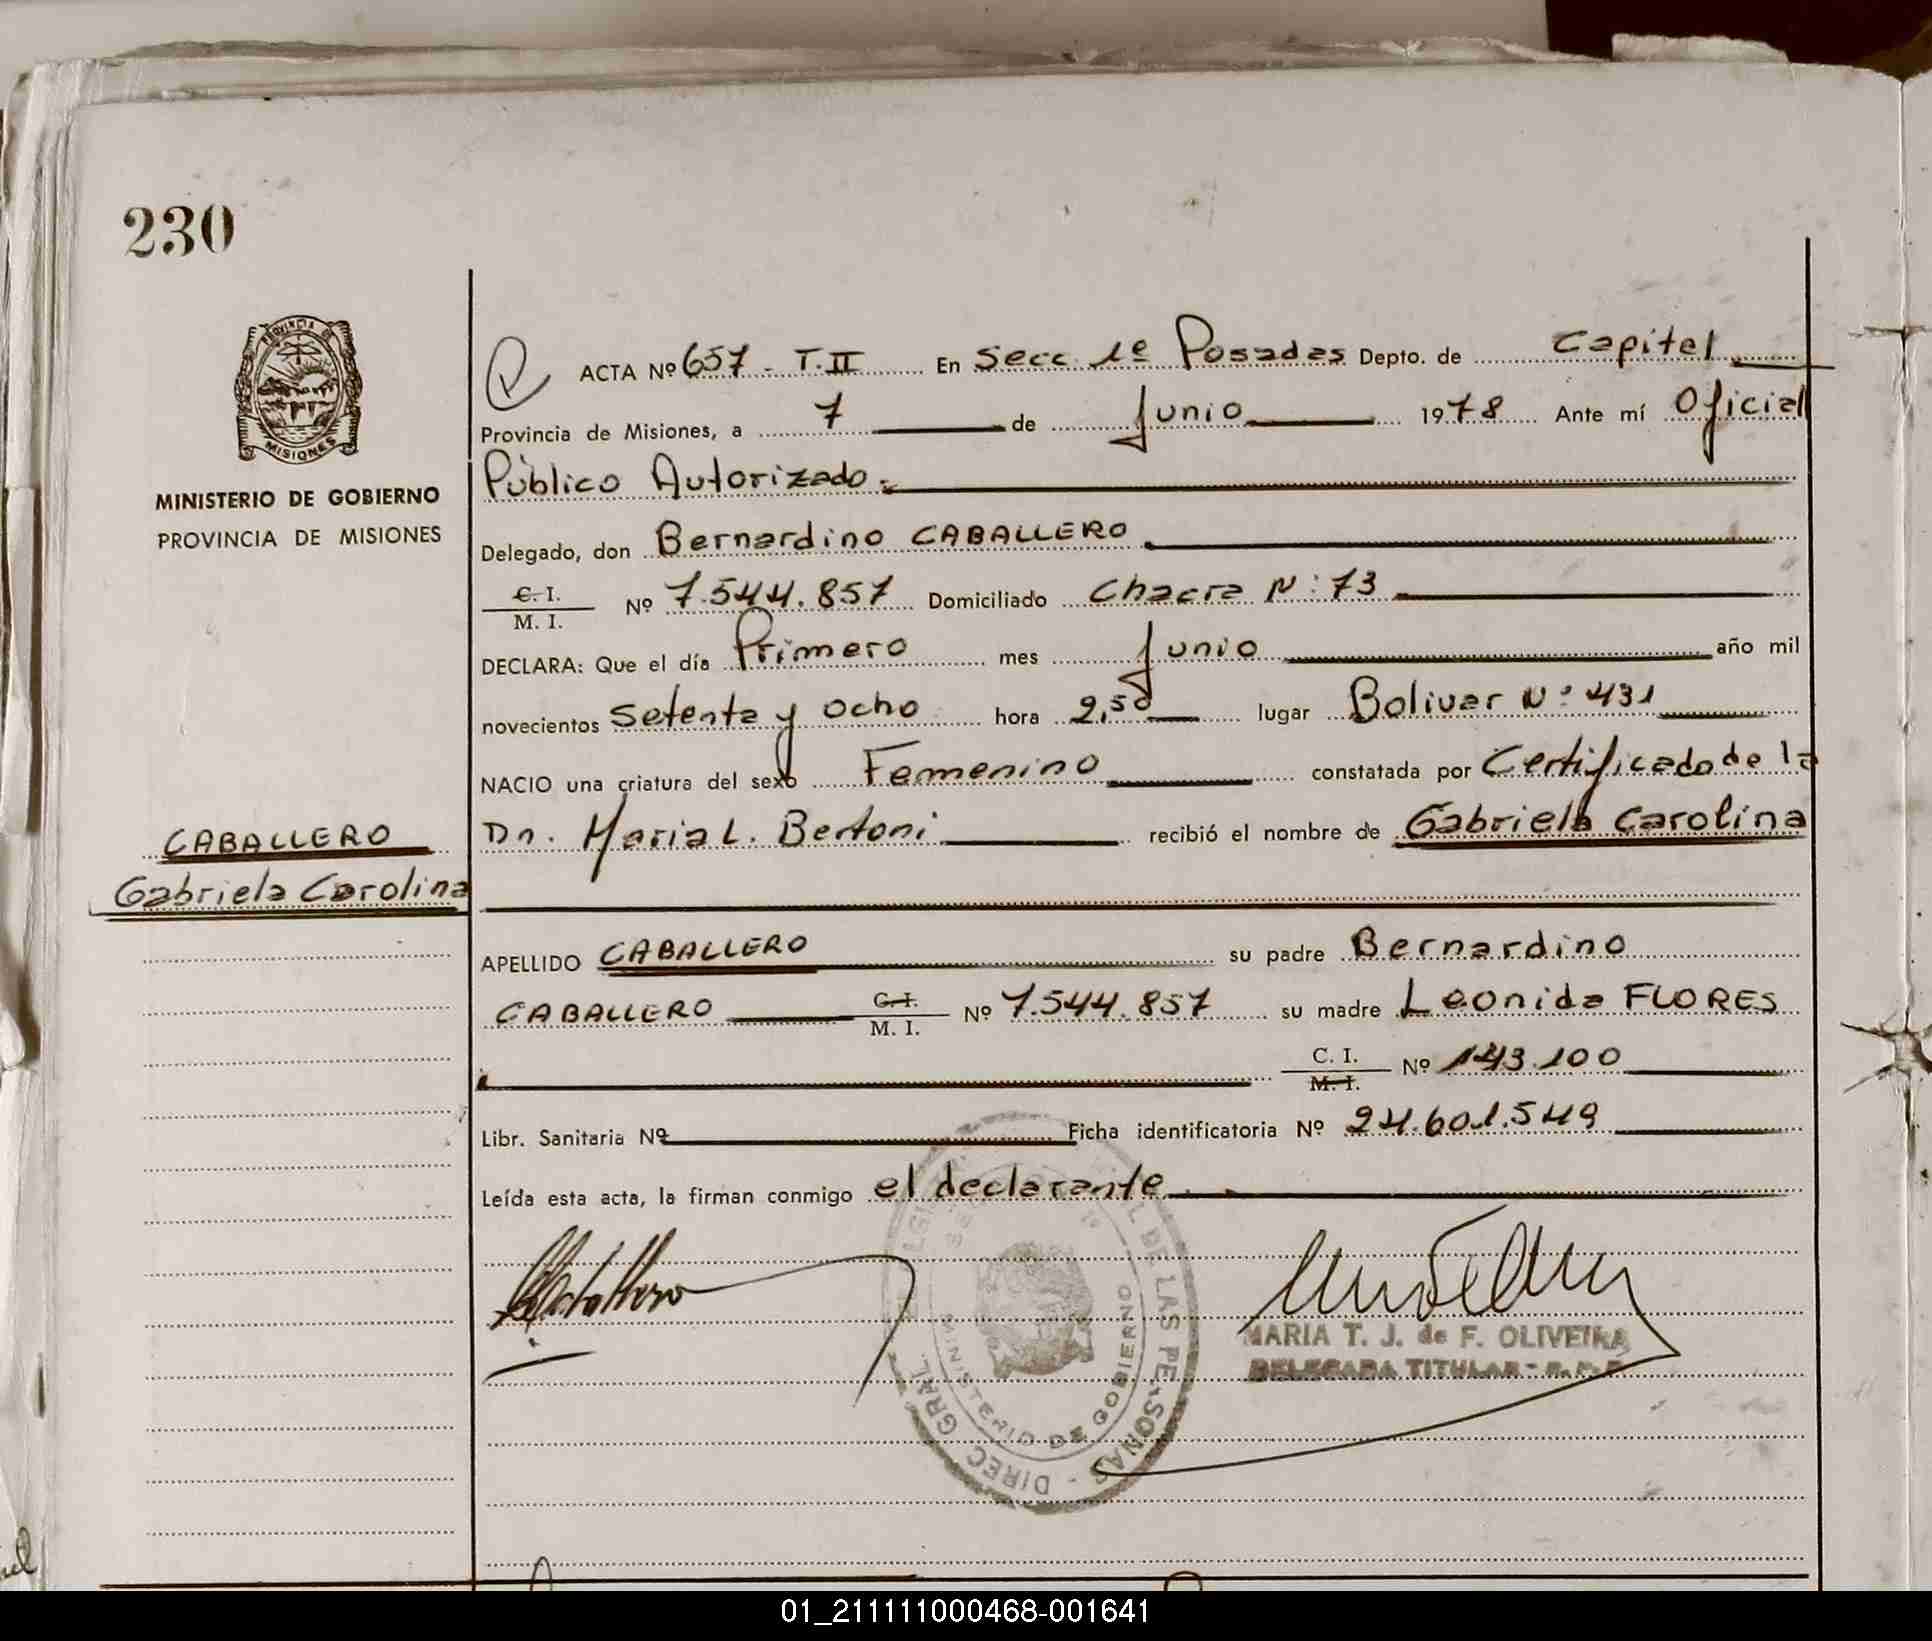 230
PROVINCIA DE
MISIONES
MINISTERIO DE GOBIERNO
PROVINCIA DE MISIONES
CABALLERO
Gabriela Carolina
ACTA Nº 657 - T.II En Secc. 1ª Posadas Depto. de Capital
Provincia de Misiones, a 7 de Junio 1978 Ante mí Oficial
Público Autorizado.
Delegado, don Bernardino CABALLERO
C. I.
M. I. Nº 7.544.857 Domiciliado Chacra N: 73
DECLARA: Que el día Primero mes Junio año mil
novecientos Setenta y Ocho hora 2,50 lugar Bolivar Nº 431
NACIO una criatura del sexo Femenino constatada por Certificado de la
Dn. Maria L. Bertoni recibió el nombre de Gabriela Carolina
APELLIDO CABALLERO su padre Bernardino
CABALLERO C. I.
M. I. Nº 7.544.857 su madre Leonida FLORES
C. I.
M. I. Nº 143.100
Libr. Sanitaria Nº Ficha identificatoria Nº 24.601.549
Leída esta acta, la firman conmigo el declarante.
DE LAS PERSONAS - DIREC GRAL.
MINISTERIO DE GOBIERNO
MARIA T. J. de F. OLIVEIRA
DELEGADA TITULAR
01_211111000468-001641